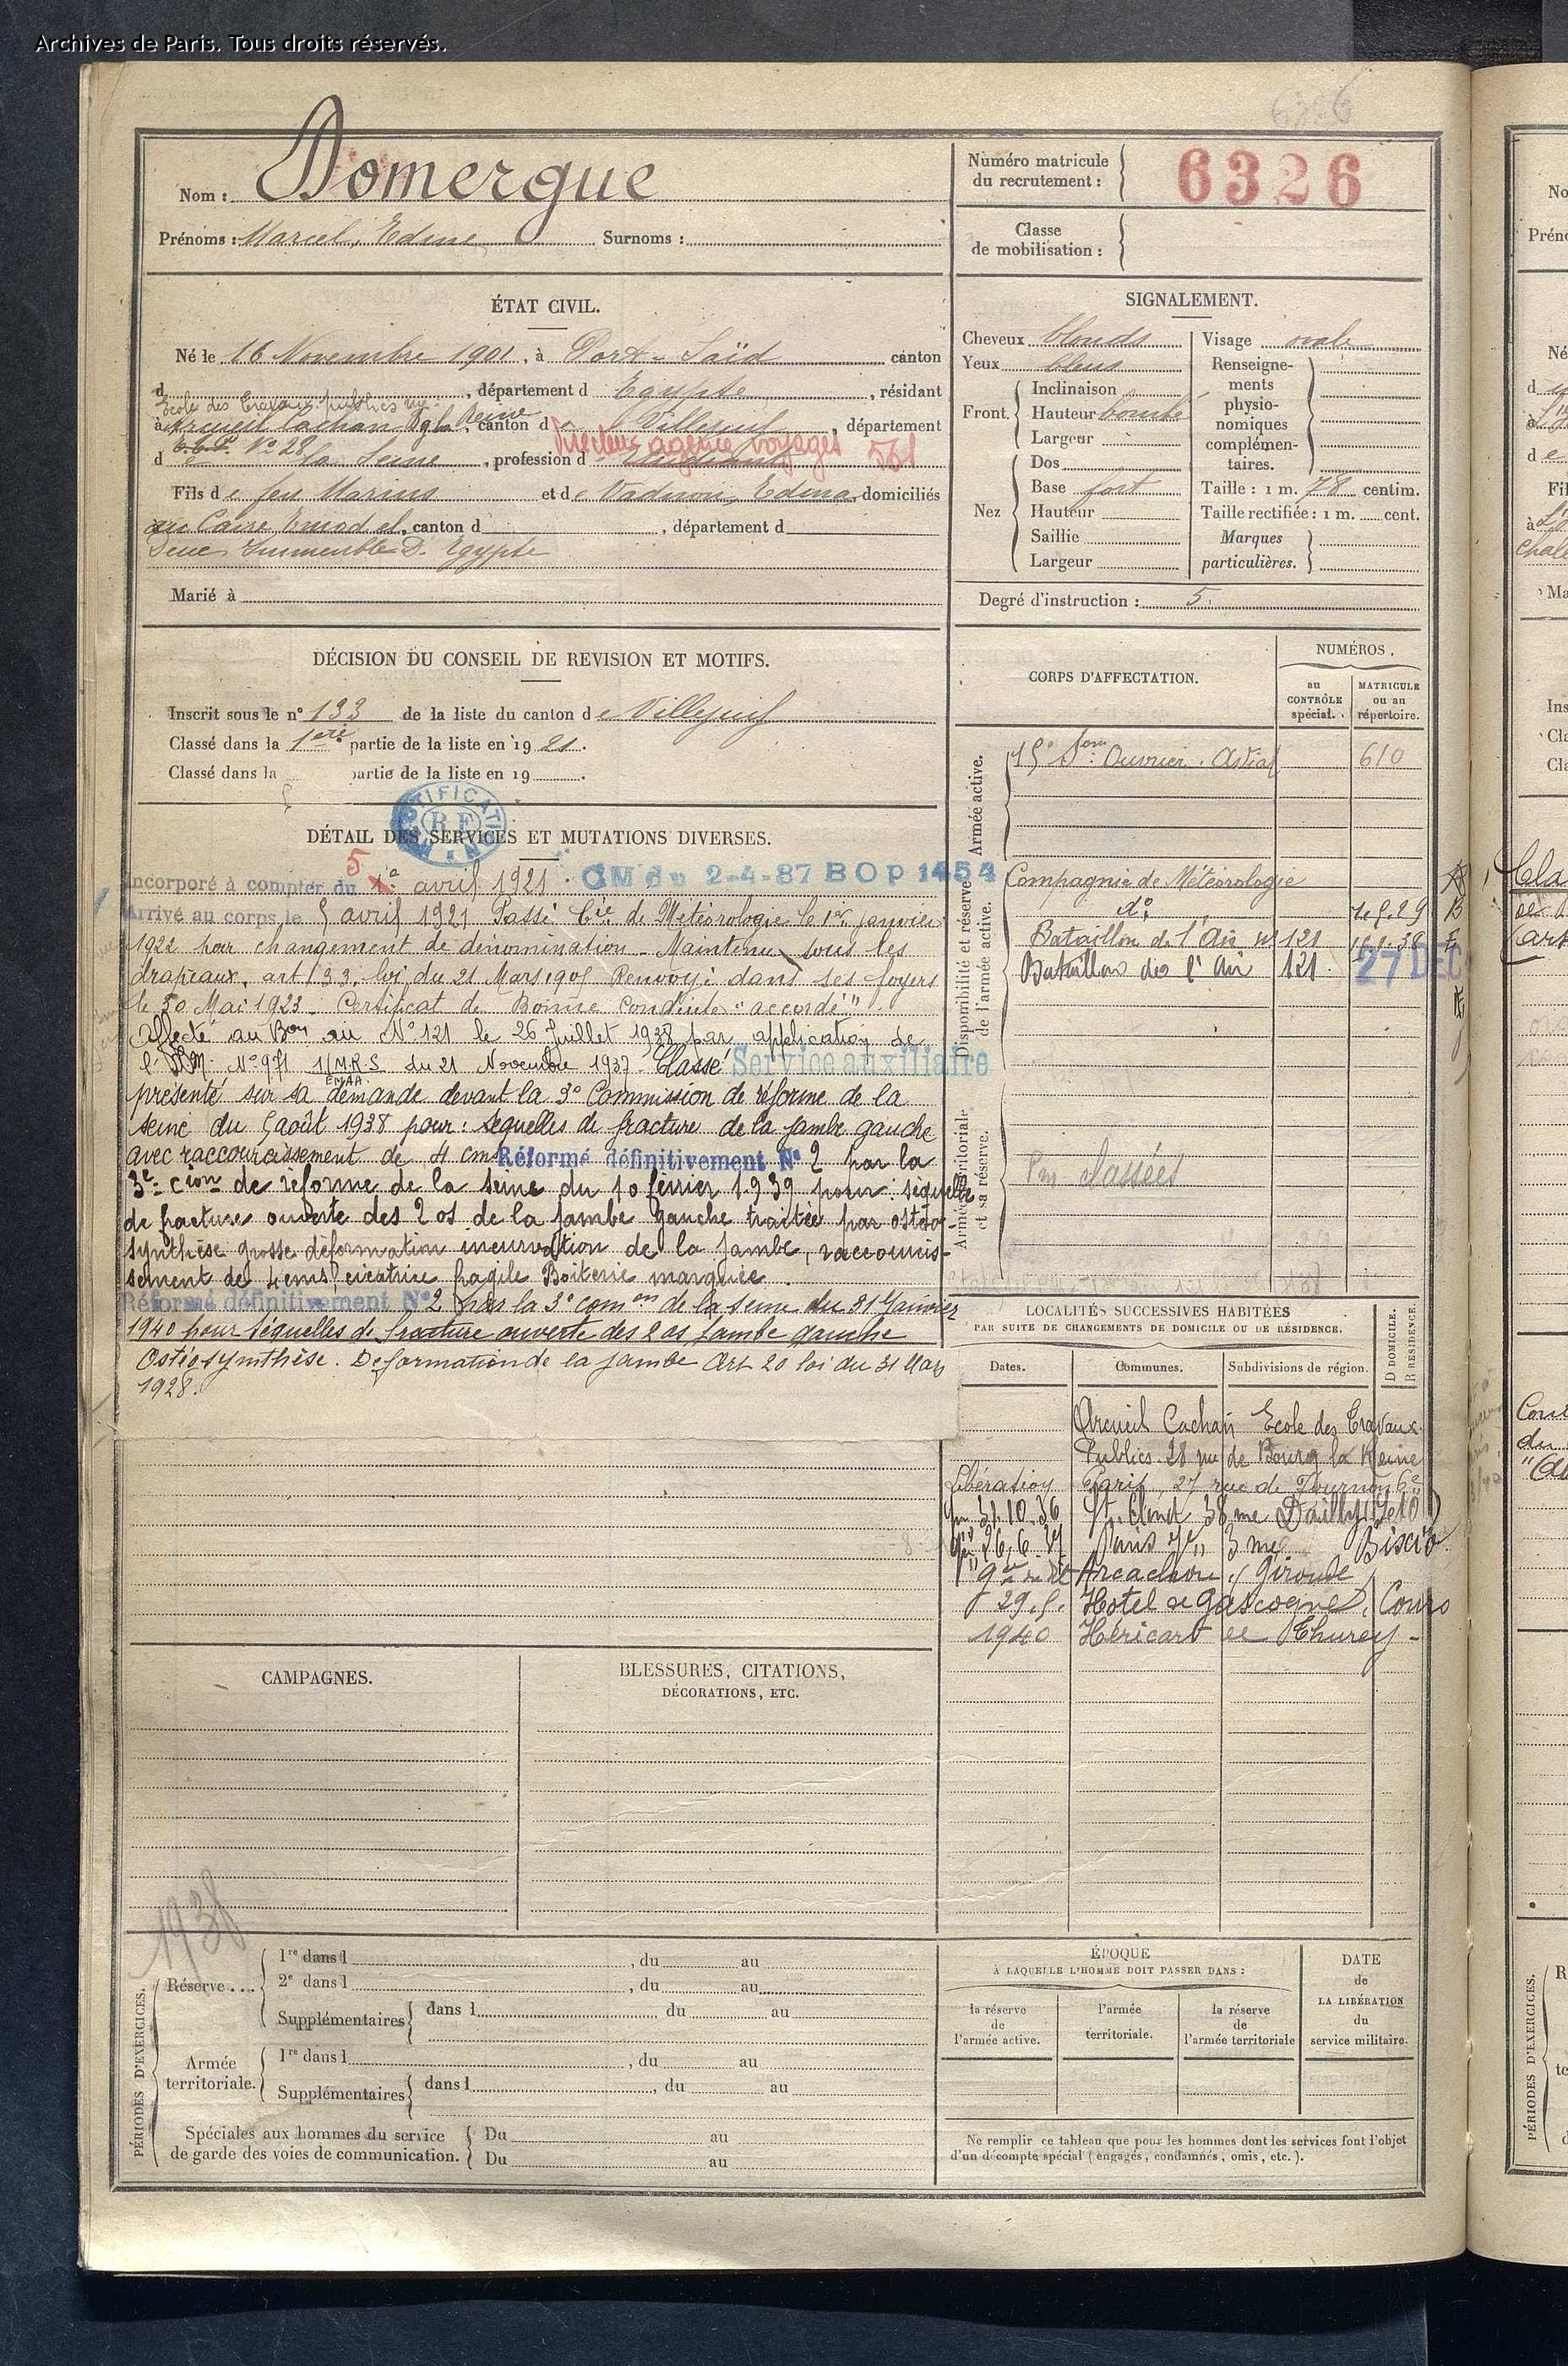 Archives de Paris. Tous droits réservés.
Nom : Domergue
Prénoms : Marcel, Edme Surnoms :
Numéro matricule
du recrutement : 6326
Classe
de mobilisation :
ÉTAT CIVIL.
Né le 16 Novembre 1901, à Port-Saïd canton
d , département d Egypte , résidant
Ecole des Travaux publics rue
à Arcueil Cachan Bg la Reine, canton de Villejuif, département
N° 28
de la Seine, profession d Etudiant
Directeur agence voyages 551
Fils de feu Marius et de Vadinon, Edma, domiciliés
au Caire Emad el, canton d , département d
Dine Immeuble D. Egypte
Marié à
SIGNALEMENT.
Cheveux blonds
Yeux bleus
Front. Inclinaison
Hauteur bombé
Largeur
Nez Dos
Base fort
Hauteur
Saillie
Largeur
Visage ovale
Renseigne-
ments
physio-
nomiques
complémen-
taires.
Taille : 1 m. 78 centim.
Taille rectifiée : 1 m. cent.
Marques
particulières.
Degré d'instruction : 5.
DÉCISION DU CONSEIL DE REVISION ET MOTIFS.
Inscrit sous le n° 133 de la liste du canton de Villejuif
Classé dans la 1ère partie de la liste en 1921.
Classé dans la partie de la liste en 19 .
CORPS D'AFFECTATION.
NUMÉROS.
au
CONTRÔLE
spécial.
MATRICULE
ou au
répertoire.
Armée active.
15° Son Ouvrier. Aviat 610
Disponibilité et réserve
de l'armée active.
Compagnie de Météorologie
d°
Bataillon de l'Air n° 121
Bataillon de l'Air 121. 27 DEC
Armée territoriale
et sa réserve.
classées
DÉTAIL DES SERVICES ET MUTATIONS DIVERSES.
RF
Incorporé à compter du 5 avril 1921. CM du 2-4-87 BOP 1454
Arrivé au corps le 5 avril 1921 Passé Cie de Météorologie le 1er janvier
1922 par changement de dénomination - Maintenu sous les
drapeaux, art 33. loi du 21 Mars 1905 Renvoyé dans ses foyers
le 30 Mai 1923. Certificat de Bonne Conduite "accordé"
Affecté au Bon air N° 121 le 26 Juillet 1938 par application de
l' N° 971 1/M.R.S du 21 Novembre 1937 - Classé Service auxiliaire
EMAA.
présenté sur sa demande devant la 3° Commission de réforme de la
seine du 5 août 1938 pour : séquelles de fracture de la jambe gauche
avec raccourcissement de 4 cms Réformé définitivement N° 2 par la
3e cion de réforme de la seine du 10 février 1939 pour : séquelle
de fracture ouverte des 2 os de la jambe gauche traitée par ostéo-
synthèse grosse déformation incurvation de la jambe, raccourcis-
sement de 4 cms cicatrice fragile Boiterie marquée.
Réformé définitivement N° 2 par la 3° comon de la seine du 31 Janvier
1940 pour séquelles de fracture ouverte des 2 os jambe gauche
Ostéosynthèse. Deformation de la jambe Art 20 loi du 31 Mars
1928.
LOCALITÉS SUCCESSIVES HABITÉES
PAR SUITE DE CHANGEMENTS DE DOMICILE OU DE RÉSIDENCE.
Dates.
Communes.
Subdivisions de région.
D DOMICILE.
R RESIDENCE.
Arcueil Cachan Ecole des Travaux
Publics 28 rue de Bourg la Reine
Libération Paris, 27 rue de Tournon 6e
31.10.36 St. Cloud 38 rue Dailly
26.6.37 Paris 3 rue Biscio
Arcachon, Gironde
29.5. Hotel de Gascogne, Cours
1940 Héricart de Thurey -
CAMPAGNES.
BLESSURES, CITATIONS,
DÉCORATIONS, ETC.
1938
PÉRIODES D'EXERCICES.
Réserve . . .
1re dans l , du au
2e dans l , du au
Supplémentaires dans l , du au
Armée
territoriale.
1re dans l , du au
Supplémentaires dans l , du au
Spéciales aux hommes du service
de garde des voies de communication.
Du au
Du au
ÉPOQUE
À LAQUELLE L'HOMME DOIT PASSER DANS :
la réserve
de
l'armée active.
l'armée
territoriale.
la réserve
de
l'armée territoriale
DATE
de
LA LIBÉRATION
du
service militaire.
Ne remplir ce tableau que pour les hommes dont les services font l'objet
d'un décompte spécial (engagés, condamnés, omis, etc.).